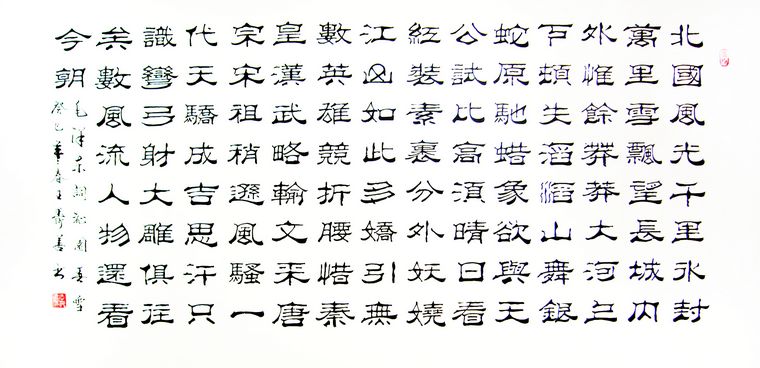 北國風光千里氷封
萬里雪飄望長城內
外惟餘莽莽大河上
下頓失滔滔山舞銀
蛇原馳蜡象欲與天
公試比高須晴日看
紅裝素裹分外妖嬈
江山如此多嬌引無
數英雄競折腰惜秦
皇漢武略輸文采唐
宗宋祖稍遜風騷一
代天驕成吉思汗只
識彎弓射大雕俱往
矣數風流人物還看
今朝
毛泽东詞沁園春雪
癸巳年春王壽善书